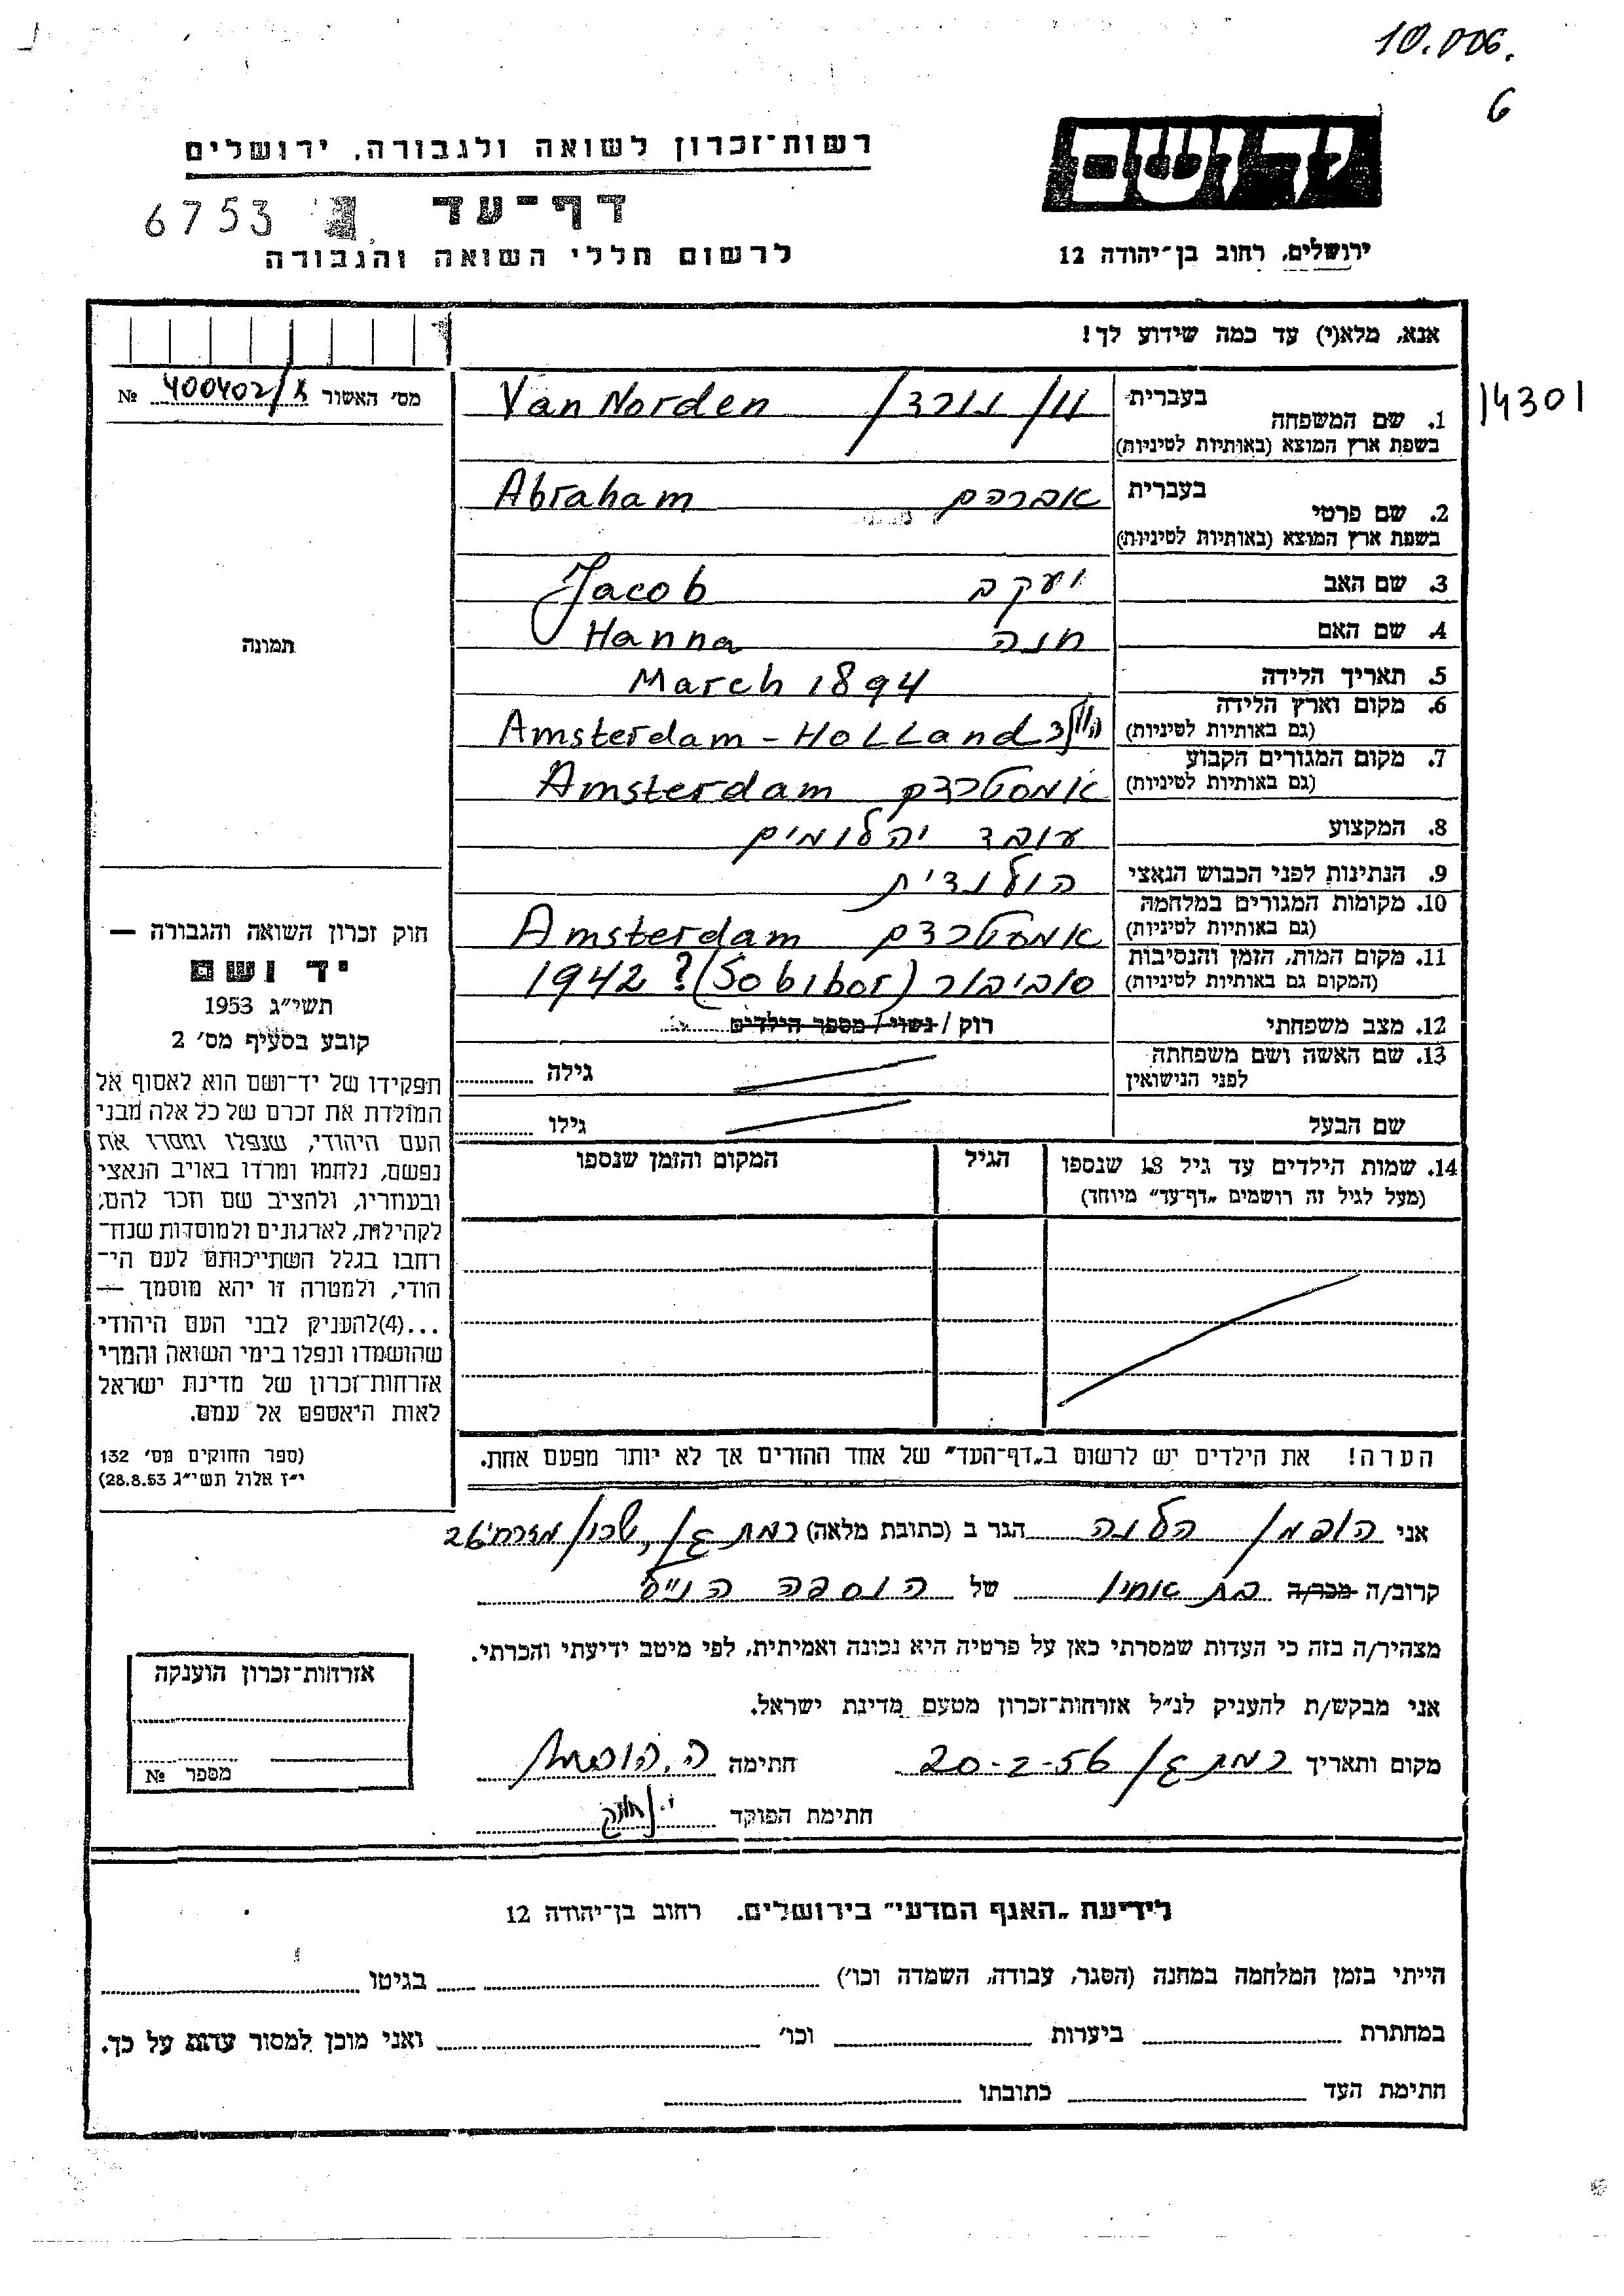 10.006.
6
יד ושם
רשות־זכרון לשואה ולגבורה, ירושלים
דף־עד
6753
לרשום חללי השואה והגבורה
ירושלים, רחוב בן־יהודה 12
אנא, מלא(י) עד כמה שידוע לך!
מס׳ האשור 400402/ № 
14301
1. שם המשפחה בעברית ון נורדן Van Norden
בשפת ארץ המוצא (באותיות לטיניות)
2. שם פרטי בעברית אברהם Abraham
בשפת ארץ המוצא (באותיות לטיניות)
3. שם האב יעקב Jacob
4. שם האם חנה Hanna
5. תאריך הלידה March 1894
6. מקום וארץ הלידה Amsterdam - HOLLand הולנד
(גם באותיות לטיניות)
7. מקום המגורים הקבוע אמסטרדם Amsterdam
(גם באותיות לטיניות)
8. המקצוע עובד יהלומים
9. הנתינות לפני הכבוש הנאצי הולנדית
10. מקומות המגורים במלחמה אמסטרדם Amsterdam
(גם באותיות לטיניות)
11. מקום המות, הזמן והנסיבות סוביבור (Sobibor) 1942?
(המקום גם באותיות לטיניות)
12. מצב משפחתי רוק / נשוי / מספר הילדים
13. שם האשה ושם משפחתה גילה
לפני הנישואין
שם הבעל גילו
14. שמות הילדים עד גיל 18 שנספו הגיל המקום והזמן שנספו
(מעל לגיל זה רושמים „דף־עד״ מיוחד)
תמונה
חוק זכרון השואה והגבורה —
יד ושם
תשי״ג 1953
קובע בסעיף מס׳ 2
תפקידו של יד־ושם הוא לאסוף אל
המולדת את זכרם של כל אלה מבני
העם היהודי, שנפלו ומסרו את
נפשם, נלחמו ומרדו באויב הנאצי
ובעוזריו, ולהציב שם וזכר להם,
לקהילות, לארגונים ולמוסדות שנח־
רחבו בגלל השתייכותם לעם הי־
הודי, ולמטרה זו יהא מוסמך —
...(4)להעניק לבני העם היהודי
שהושמדו ונפלו בימי השואה והמרי
אזרחות־זכרון של מדינת ישראל
לאות היאספם אל עמם.
(ספר החוקים מס׳ 132
י״ז אלול תשי״ג 28.8.53)
הערה! את הילדים יש לרשום ב„דף־העד״ של אחד ההורים אך לא יותר מפעם אחת.
אני הופמן הלנה הגר ב (כתובת מלאה) רמת גן, שכון מזרחי 26
קרוב/ה מכר/ה בת אחיו של הנספה הנ״ל
מצהיר/ה בזה כי העדות שמסרתי כאן על פרטיה היא נכונה ואמיתית, לפי מיטב ידיעתי והכרתי.
אני מבקש/ת להעניק לנ״ל אזרחות־זכרון מטעם מדינת ישראל.
מקום ותאריך רמת גן 20-2-56 חתימה ה. הופמן
חתימת הפוקד
אזרחות־זכרון הוענקה
מספר №
לידיעת „האגף המדעי״ בירושלים, רחוב בן־יהודה 12
הייתי בזמן המלחמה במחנה (הסגר, עבודה, השמדה וכו׳) בגיטו
במחתרת ביערות וכו׳ ואני מוכן למסור עדות על כך.
חתימת העד כתובתו